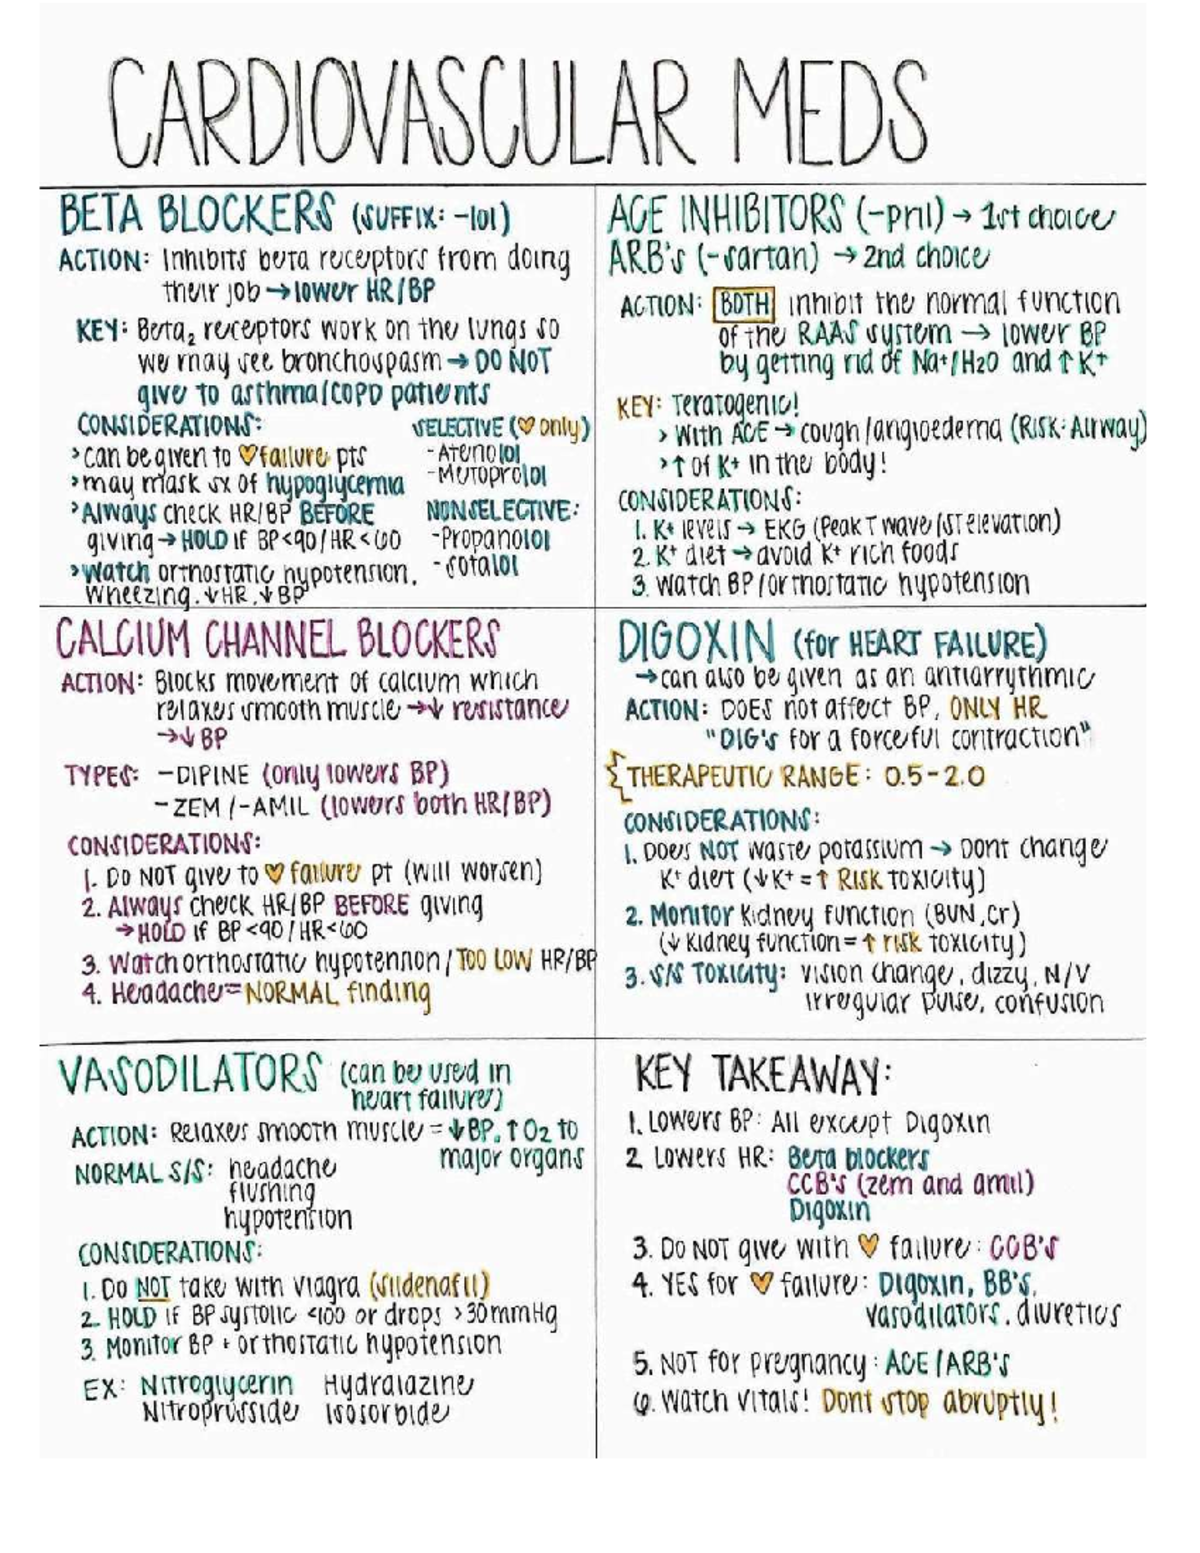 CARDIOVASCULAR MEDS
BETA BLOCKERS (SUFFIX: -lol)
ACTION: Inhibits beta receptors from doing
their job → lower HR/BP
KEY: Beta₂ receptors work on the lungs so
we may see bronchospasm → DO NOT
give to asthma/COPD patients
CONSIDERATIONS:
> can be given to ♡ failure pts
> may mask sx of hypoglycemia
> Always check HR/BP BEFORE
giving → HOLD if BP <90/HR <60
> Watch orthostatic hypotension,
wheezing, ↓HR, ↓BP
SELECTIVE (♡ only)
- Atenolol
- Metoprolol
NONSELECTIVE:
- Propanolol
- Sotalol
ACE INHIBITORS (-pril) → 1st choice
ARB's (-sartan) → 2nd choice
ACTION: BOTH inhibit the normal function
of the RAAS system → lower BP
by getting rid of Na+/H2O and ↑ K+
KEY: Teratogenic!
> With ACE → cough/angioedema (Risk: Airway)
> ↑ of K+ in the body!
CONSIDERATIONS:
1. K+ levels → EKG (Peak T wave/ST elevation)
2. K+ diet → avoid K+ rich foods
3. Watch BP/orthostatic hypotension
CALCIUM CHANNEL BLOCKERS
ACTION: Blocks movement of calcium which
relaxes smooth muscle →↓ resistance
→↓ BP
TYPES: -DIPINE (only lowers BP)
-ZEM/-AMIL (lowers both HR/BP)
CONSIDERATIONS:
1. DO NOT give to ♡ failure pt (will worsen)
2. Always check HR/BP BEFORE giving
→ HOLD if BP <90/HR <60
3. Watch orthostatic hypotennion/TOO LOW HR/BP
4. Headache = NORMAL finding
DIGOXIN (for HEART FAILURE)
→ can also be given as an antiarrythmic
ACTION: DOES not affect BP, ONLY HR
"DIG's for a forceful contraction"
THERAPEUTIC RANGE: 0.5-2.0
CONSIDERATIONS:
1. Does NOT waste potassium → Dont change
K+ diet (↓K+ = ↑ RISK TOXICITY)
2. Monitor Kidney function (BUN, Cr)
(↓ Kidney function = ↑ risk toxicity)
3. S/S TOXICITY: vision change, dizzy, N/V
irregular pulse, confusion
VASODILATORS (can be used in
heart failure)
ACTION: Relaxes smooth muscle = ↓BP, ↑O2 to
major organs
NORMAL S/S: headache
flushing
hypotention
CONSIDERATIONS:
1. Do NOT take with viagra (sildenafil)
2. HOLD if BP systolic <100 or drops >30mmHg
3. Monitor BP + orthostatic hypotension
EX: Nitroglycerin Hydralazine
Nitroprusside Isosorbide
KEY TAKEAWAY:
1. Lowers BP: All except Digoxin
2. Lowers HR: Beta blockers
CCB's (zem and amil)
Digoxin
3. DO NOT give with ♡ failure: CCB's
4. YES for ♡ failure: Digoxin, BB's,
vasodilators, diuretics
5. NOT for pregnancy: ACE/ARB's
6. Watch vitals! Dont stop abruptly!